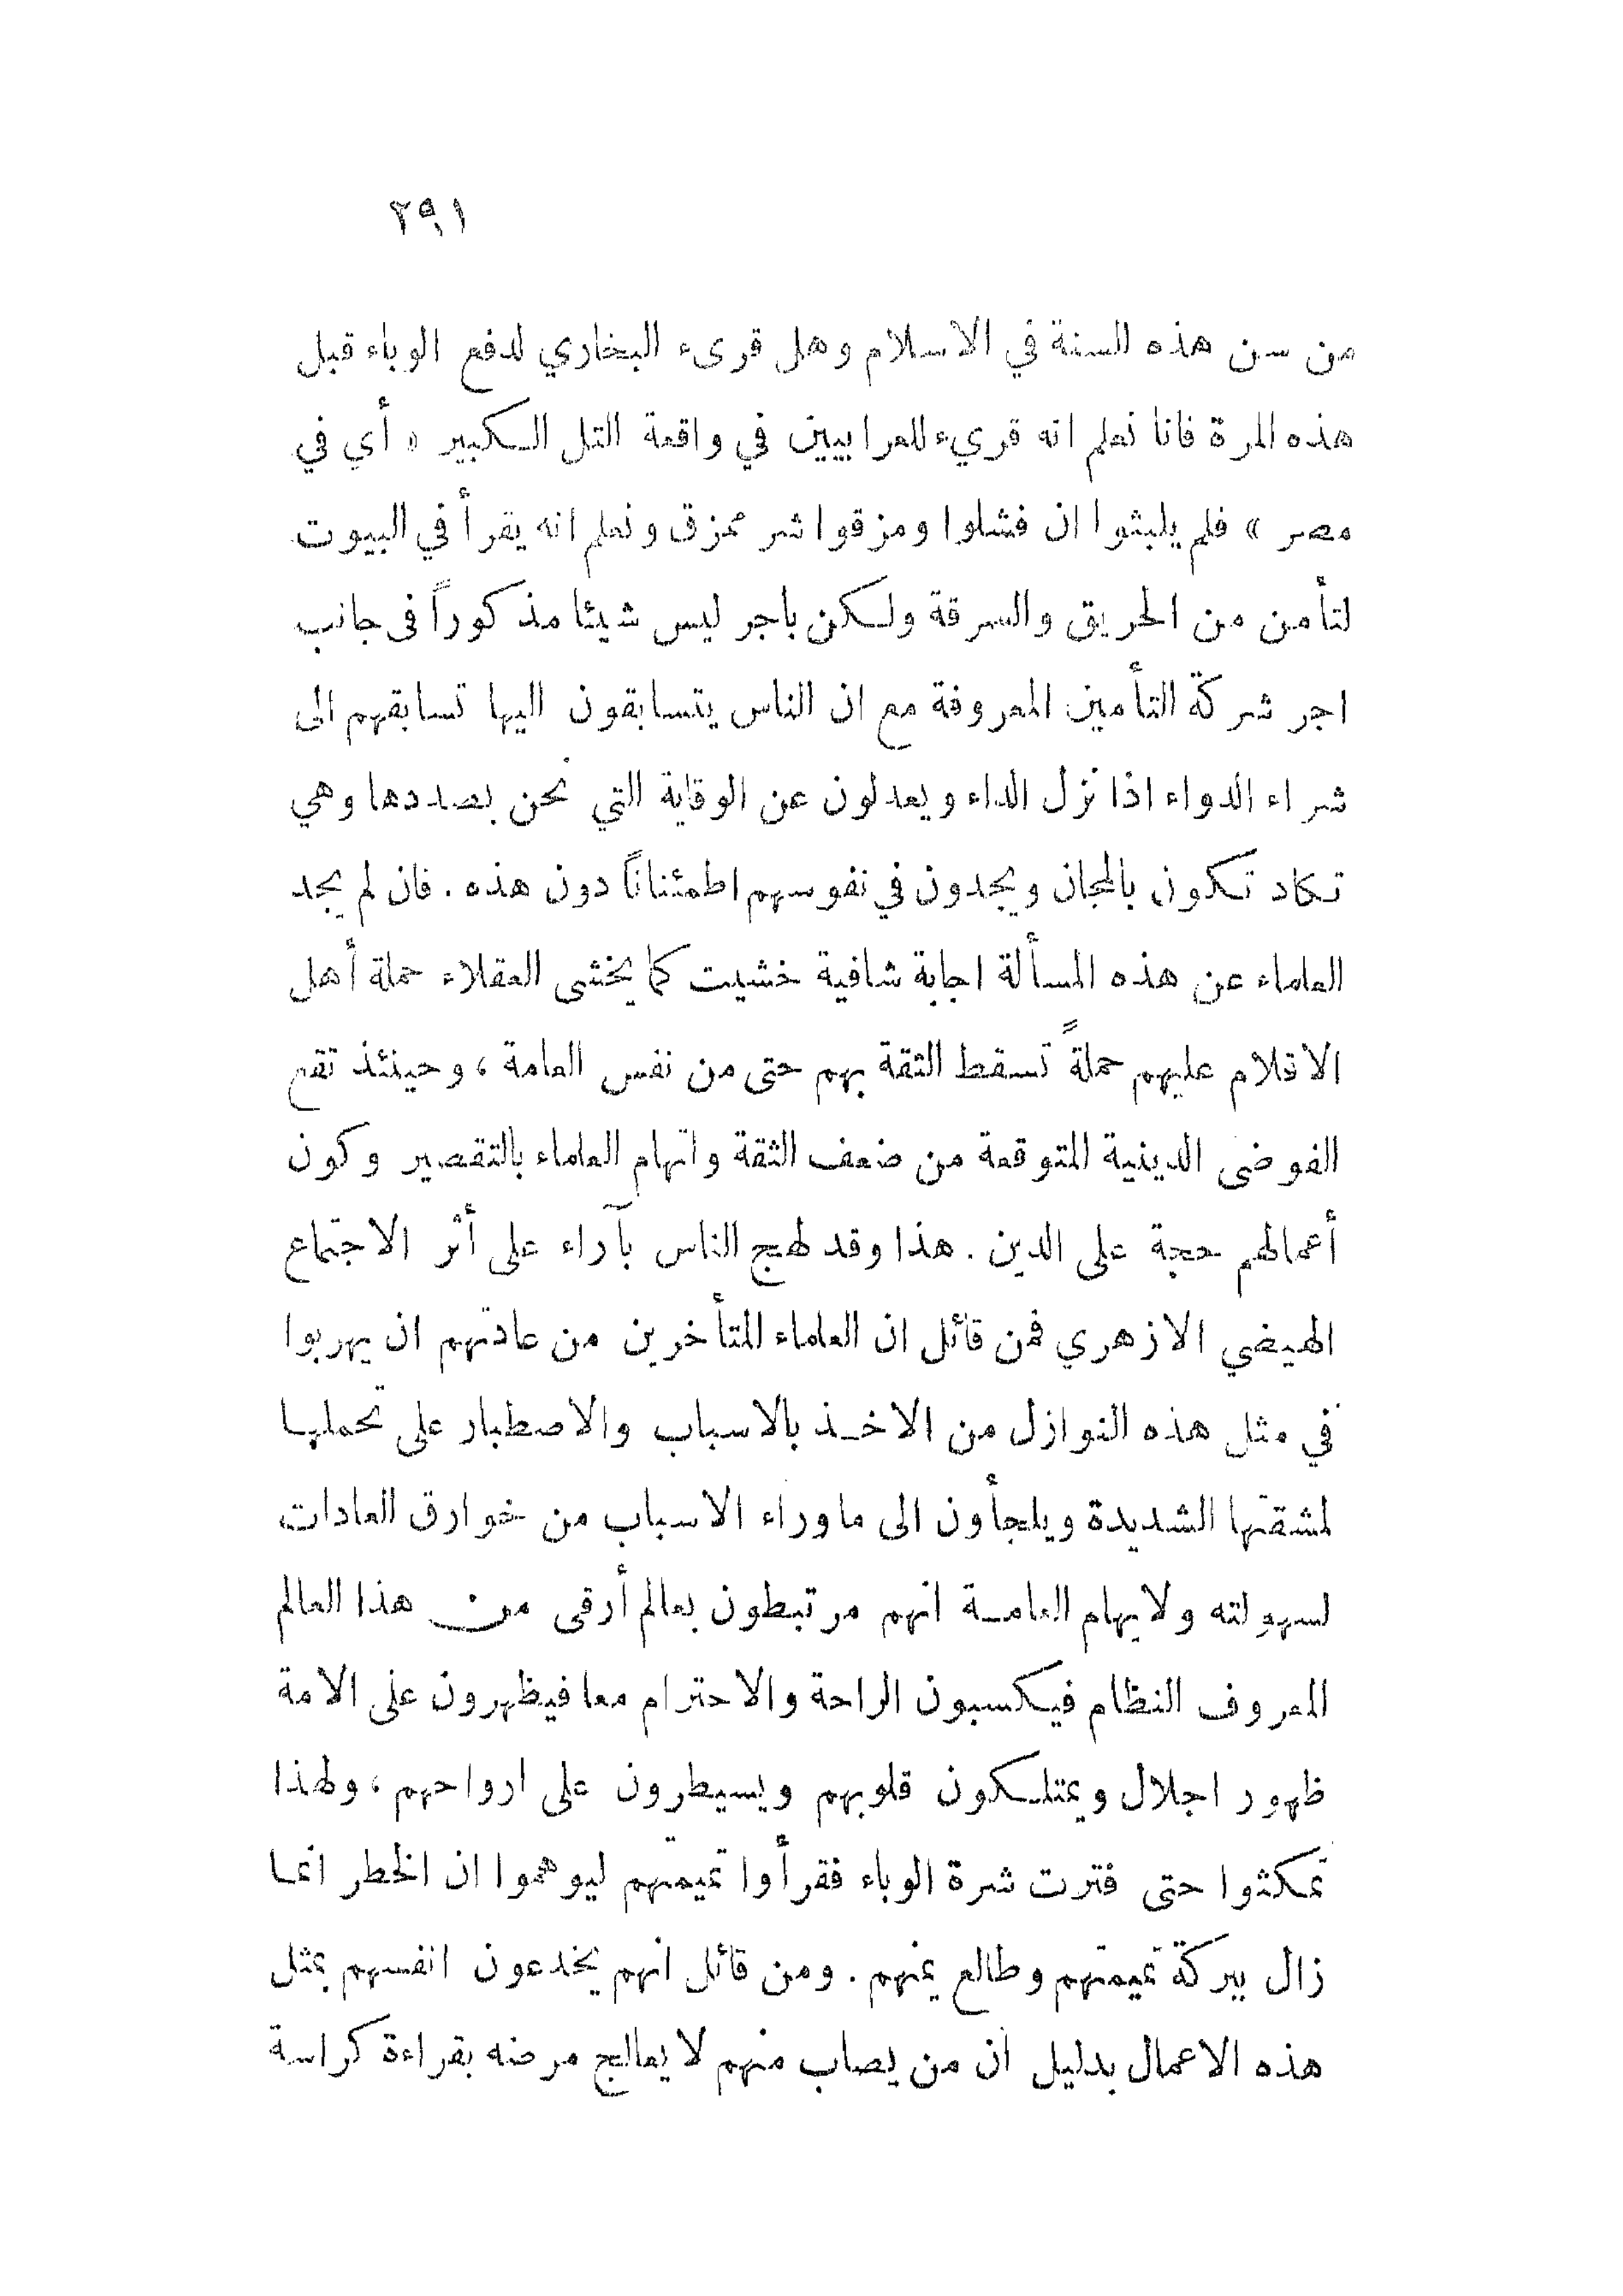 ٢٩١
من سن هذه السنة في الاسلام وهل قرىء البخاري لدفع الوباء قبل
هذه المرة فانا نعلم انه قريء للعرابيين في واقعة التل الكبير « أي في
مصر » فلم يلبثوا ان فشلوا ومزقوا شر ممزق ونعلم انه يقرأ في البيوت
لتأمن من الحريق والسرقة ولكن باجر ليس شيئا مذكوراً فى جانب
اجر شركة التأمين المعروفة مع ان الناس يتسابقون اليها تسابقهم الى
شراء الدواء اذا نزل الداء ويعدلون عن الوقاية التي نحن بصددها وهي
تكاد تكون بالمجان ويجدون في نفوسهم اطمئناناً دون هذه . فان لم يجد
العلماء عن هذه المسألة اجابة شافية خشيت كما يخشى العقلاء حملة أهل
الاقلام عليهم حملةً تسقط الثقة بهم حتى من نفس العامة ، وحينئذ تقع
الفوضى الدينية المتوقعة من ضعف الثقة واتهام العلماء بالتقصير وكون
أعمالهم حجة على الدين . هذا وقد لهج الناس بآراء على أثر الاجتماع
الهيضي الازهري فمن قائل ان العلماء المتأخرين من عادتهم ان يهربوا
في مثل هذه النوازل من الاخذ بالاسباب والاصطبار على تحملها
لمشقتها الشديدة ويلجأون الى ماوراء الاسباب من خوارق العادات
لسهولته ولايهام العامة انهم مرتبطون بعالم أرقى من هذا العالم
المعروف النظام فيكسبون الراحة والاحترام معا فيظهرون على الامة
ظهور اجلال ويمتلكون قلوبهم ويسيطرون على ارواحهم ، ولهذا
تمكثوا حتى فترت شرة الوباء فقرأوا تميمتهم ليوهموا ان الخطر انما
زال ببركة تميمتهم وطالع يمنهم . ومن قائل انهم يخدعون انفسهم بمثل
هذه الاعمال بدليل ان من يصاب منهم لا يعالج مرضه بقراءة كراسة